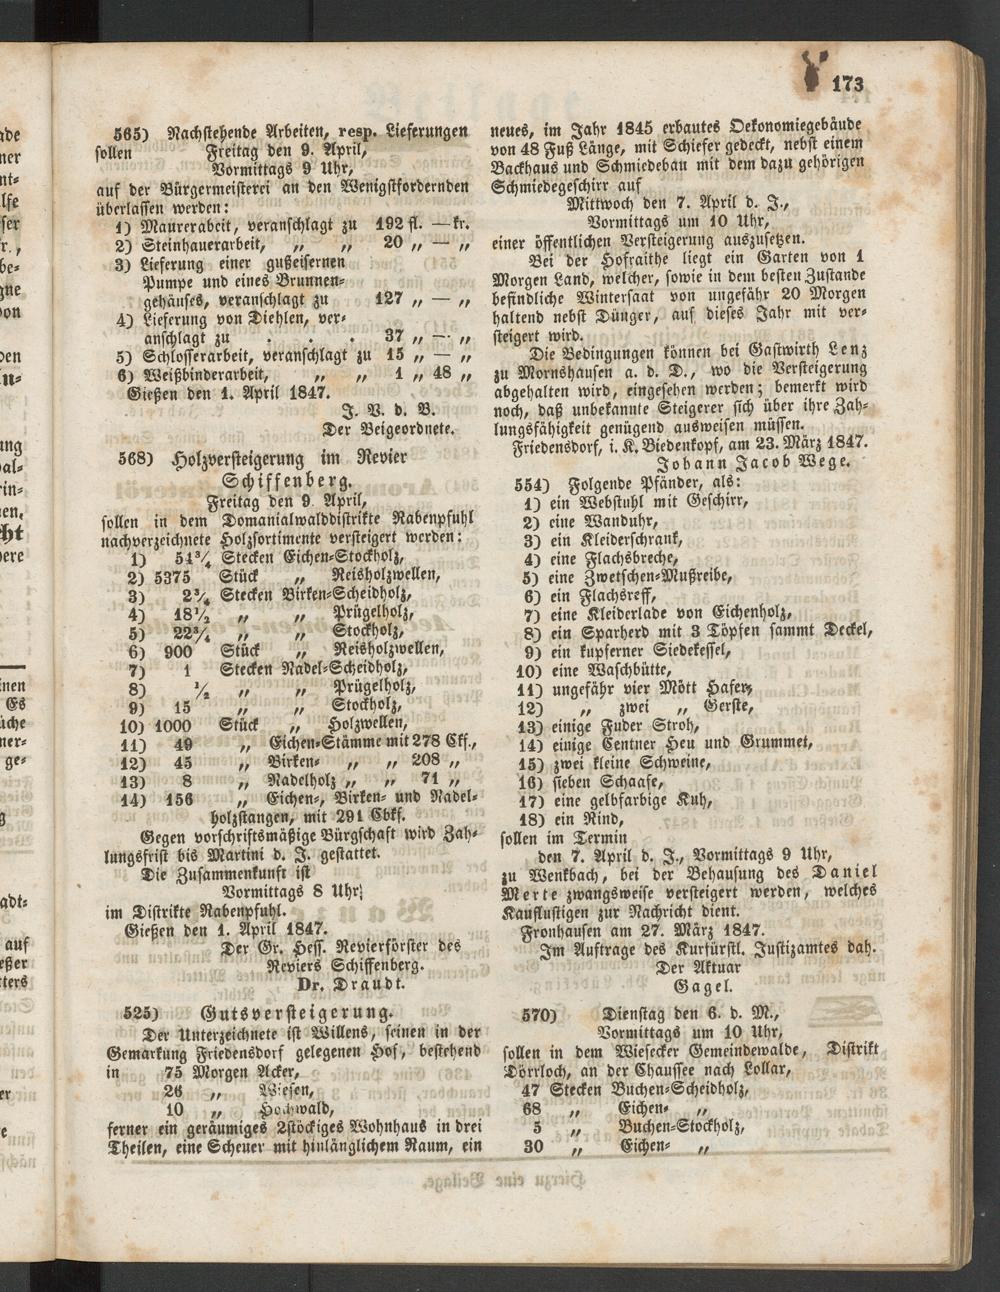 173
565) Nachstehende Arbeiten, resp. Lieferungen
sollen Freitag den 9. April,
Vormittags 9 Uhr,
auf der Bürgermeisterei an den Wenigstfordernden
überlassen werden:
1) Maurerabeit, veranschlagt zu 192 fl. — kr.
2) Steinhauerarbeit, „ „ 20 „ — „
3) Lieferung einer gußeisernen
Pumpe und eines Brunnen-
gehäuses, veranschlagt zu 127 „ — „
4) Lieferung von Diehlen, ver-
anschlagt zu . . . 37 „ — „
5) Schlosserarbeit, veranschlagt zu 15 „ — „
6) Weißbinderarbeit, „ „ 1 „ 48 „
Gießen den 1. April 1847.
J. V. d. B.
Der Beigeordnete.
568) Holzversteigerung im Revier
Schiffenberg.
Freitag den 9. April,
sollen in dem Domanialwalddistrikte Rabenpfuhl
nachverzeichnete Holzsortimente versteigert werden:
1) 54¾ Stecken Eichen-Stockholz,
2) 5375 Stück „ Reisholzwellen,
3) 2¾ Stecken Birken-Scheidholz,
4) 18½ „ „ Prügelholz,
5) 22¾ „ „ Stockholz,
6) 900 Stück „ Reisholzwellen,
7) 1 Stecken Nadel-Scheidholz,
8) ½ „ „ Prügelholz,
9) 15 „ „ Stockholz,
10) 1000 Stück „ Holzwellen,
11) 49 „ Eichen-Stämme mit 278 Ckf.,
12) 45 „ Birken- „ „ 208 „
13) 8 „ Nadelholz „ „ 71 „
14) 156 „ Eichen-, Birken- und Nadel-
holzstangen, mit 291 Cbkf.
Gegen vorschriftsmäßige Bürgschaft wird Zah-
lungsfrist bis Martini d. J. gestattet.
Die Zusammenkunft ist
Vormittags 8 Uhr
im Distrikte Rabenpfuhl.
Gießen den 1. April 1847.
Der Gr. Hess. Revierförster des
Reviers Schiffenberg.
Dr. Draudt.
525) Gutsversteigerung.
Der Unterzeichnete ist Willens, seinen in der
Gemarkung Friedensdorf gelegenen Hof, bestehend
in 75 Morgen Acker,
26 „ Wiesen,
10 „ Hochwald,
ferner ein geräumiges 2stöckiges Wohnhaus in drei
Theilen, eine Scheuer mit hinlänglichem Raum, ein
neues, im Jahr 1845 erbautes Oekonomiegebäude
von 48 Fuß Länge, mit Schiefer gedeckt, nebst einem
Backhaus und Schmiedebau mit dem dazu gehörigen
Schmiedegeschirr auf
Mittwoch den 7. April d. J.,
Vormittags um 10 Uhr,
einer öffentlichen Versteigerung auszusetzen.
Bei der Hofraithe liegt ein Garten von 1
Morgen Land, welcher, sowie in dem besten Zustande
befindliche Wintersaat von ungefähr 20 Morgen
haltend nebst Dünger, auf dieses Jahr mit ver-
steigert wird.
Die Bedingungen können bei Gastwirth Lenz
zu Mornshausen a. d. D., wo die Versteigerung
abgehalten wird, eingesehen werden; bemerkt wird
noch, daß unbekannte Steigerer sich über ihre Zah-
lungsfähigkeit genügend ausweisen müssen.
Friedensdorf, i. K. Biedenkopf, am 23. März 1847.
Johann Jacob Wege.
554) Folgende Pfänder, als:
1) ein Webstuhl mit Geschirr,
2) eine Wanduhr,
3) ein Kleiderschrank,
4) eine Flachsbreche,
5) eine Zwetschen-Mußreibe,
6) ein Flachsreff,
7) eine Kleiderlade von Eichenholz,
8) ein Sparherd mit 3 Töpfen sammt Deckel,
9) ein kupferner Siedekessel,
10) eine Waschbütte,
11) ungefähr vier Mött Hafer,
12) „ zwei „ Gerste,
13) einige Fuder Stroh,
14) einige Centner Heu und Grummet,
15) zwei kleine Schweine,
16) sieben Schaafe,
17) eine gelbfarbige Kuh,
18) ein Rind,
sollen im Termin
den 7. April d. J., Vormittags 9 Uhr,
zu Wenkbach, bei der Behausung des Daniel
Merte zwangsweise versteigert werden, welches
Kauflustigen zur Nachricht dient.
Fronhausen am 27. März 1847.
Im Auftrage des Kurfürstl. Justizamtes dah.
Der Aktuar
Gagel.
570) Dienstag den 6. d. M.,
Vormittags um 10 Uhr,
sollen in dem Wiesecker Gemeindewalde, Distrikt
Dörrloch, an der Chaussee nach Lollar,
47 Stecken Buchen-Scheidholz,
68 „ Eichen- „
5 „ Buchen-Stockholz,
30 „ Eichen- „